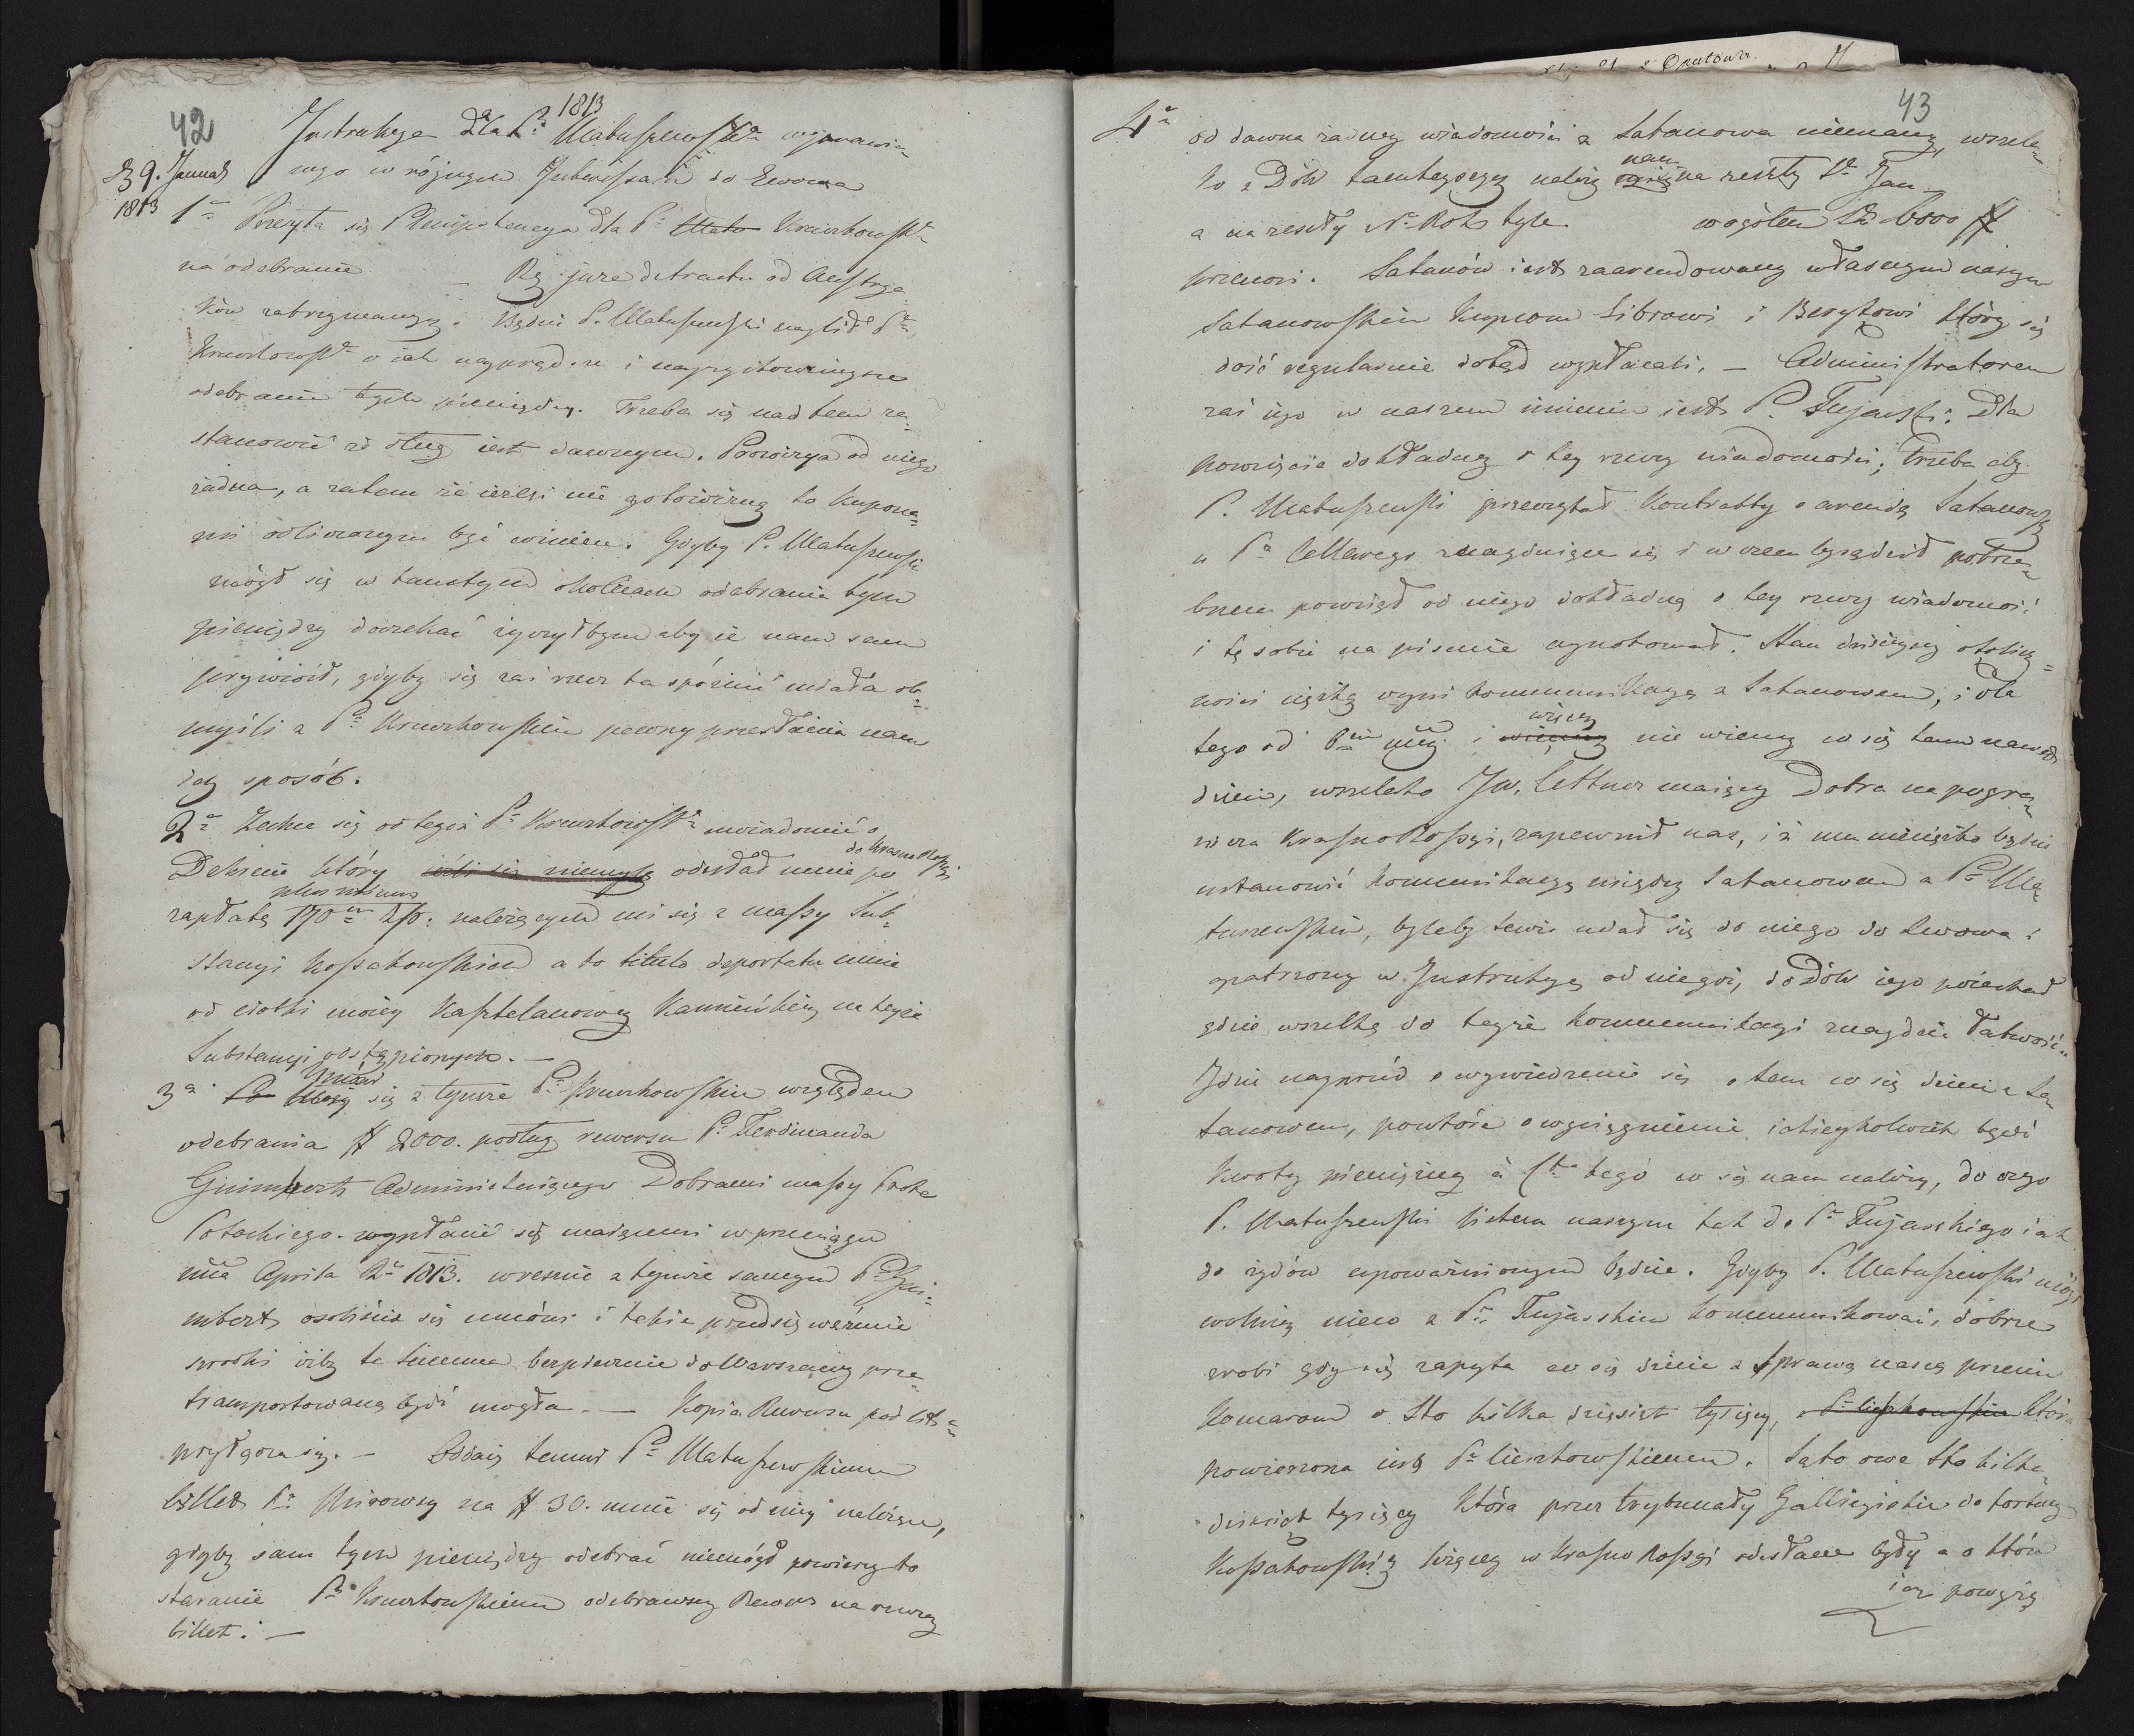 42
1813
Instrukcya dla P. Matuszewskº wyprawio-
d 9. Januar nego w różnych Interessach do Lwowa
1813 1º Przesyła się Plenipotencya dla Pª Kruszkowskº
na odebranie — Rz jure detractu od Austrya
ków zatrzymanych. Będzie P. Matuszewski naglił Pª
Kruszkowskº o jak nayprędsze i
odebranie tych pieniędzy. Trzeba się nad tem za-
stanowić że dług iest dawnym. Prowizya od niego
żadna, a zatem że ieżeli nie gotowizną to kupona-
mi odliczonym być winien. Gdyby P. Matuszewski
mógł się w tamtych okolicach odebrania tych
pieniędzy doczekać życzyłbym aby ie nam sam
przywiózł, gdyby się zaś rzecz ta spóźnić miała ob-
myśli z Pª Kruszkowskim pewny przesłania nam
ich sposób.
2ª Zechce się od tegoż Pª Kruszkowskº uwiadomić o
Dekrecie który do Krasno Rossyi odesłał mnie po
plus minus
zapłatę 170 m zło: należących mi się z massy Sub-
stancyi Kossakowskich a to titulo deportatu mnie
od ciotki moiey Kasztelanowey Kamińskiey na teyże
Substancyi ustąpionych. —
3ª Umówi się z tymże Pª Kruszkowskim względem
odebrania # 2000. podług rewersu Pª Ferdinanda
Gumbert Administruiącego Dobrami massy Prota
Potockiego. wypłacić się maiącemi w przeciągu
mca Aprila Rº 1813. wreszcie z tymże samym Pª Gui-
mbert osobiście się umówi i takie przedsięweźmie
srodki żeby ta summa bezpiecznie do Warszawy prze-
transportowaną bydź mogła. — Kopia Rewersu pod lit: a
przyłącza się. — Oddaię temuż Pª Matuszewskiemu
billet Pª na # 30. mnie się od niey należące,
gdyby sam tych pieniędzy odebrać niemógł powierzy to
staranie Pª Kruszkowskiemu odebrawszy Rewers na rzeczony
billet. —
43
4ª od dawna żadney wiadomości z Satanowa niemamy, wszela-
ko z Dóbr tamteyszych należy nam na resztę Sº Jan
a na reszty Nº Roku tyle wogóle 6000 #
przenosi. Satanów iest zaarendowany własnym naszym
Satanowskim Kupcom Librowi i którzy się
dość regularnie dotąd wypłacali. — Administratorem
zaś iego w naszem imieniu iest P. Tujawski. Dla
powzięcia dokładney o tey rzeczy wiadomości; trzeba aby
P. Matuszewski przeczytał Kontrakty o arendę Satanowską
u Pª znayduiące się i w czem by sądził potrze-
bnem powziął od niego dokładną o tey rzeczy wiadomość
i tę sobie na pismie wynotował. Stan dzisieyszy okolicz-
ności ciężką czyni kommunikacyą z Satanowem, i dla
więcey
tego od 6ciu mcy i nie wiemy co się tam nawet
dzieie, wszelako JW. maiący Dobra na pogra-
niczu Krasno Rossyi, zapewnił nas, iż mu nieciężko będzie
ustanowić kommunikacyą między Satanowem a Pª Ma-
tuszewskim, byleby tenże udał się do niego do Lwowa i
opatrzony w Instrukcyą od niegoż, do dóbr iego poiechał
gdzie wszelką do teyże kommunikacyi znaydzie łatwość.
Idzie nayprzód o wywiedzenie się o tem co się dzieie z Sa-
tanowem, powtóre o wyciągnienie iakieykolwiek bądź
kwoty pieniężney à Cto tego co się nam należy, do czego
P. Matuszewski listem naszym tak do Pª Tujawskiego iak
do żydów upoważnionym będzie. Gdyby P. Matuszewski mógł
wolniey nieco z Pª Tujawskim kommunikować, dobrze
zrobi gdy się zapyta co się dzieie z sprawą naszą przeciw
Komarom o sto kilka dziesiąt tysięcy, która
powierzona iest Pª Cieszkowskiemu. Są to owe sto kilka
dziesiąt tysięcy która przez trybunały Galliciyskie do fortuny
Kossakowskiey leżącey w Krasno Rossyi odesłane były a o które
iaż powyżey